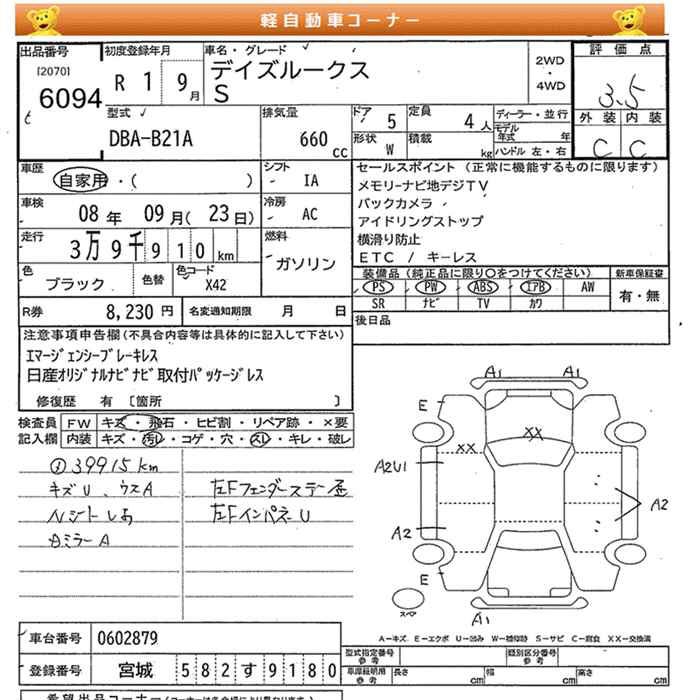 軽自動車コーナー
出品番号 初度登録年月 車名・グレード 2WD ・ 4WD 評価点
[2070] 6094 R 1 9月 デイズルークス S 3.5
型式 排気量 ドア 定員 ディーラー・並行 外装 内装
DBA-B21A 660cc 5 4人 モデル年式 年 C C
形状 W 積載 kg ハンドル 左・右
車歴 シフト セールスポイント (正常に機能するものに限ります)
自家用・( ) IA メモリーナビ地デジTV
車検 冷房 バックカメラ
08年 09月( 23日) AC アイドリングストップ
走行 燃料 横滑り防止
3万9千910km ガソリン ETC / キーレス
色 ブラック 色替 色コード X42 装備品(純正品に限り○をつけてください) 新車保証書
PS PW ABS エアB AW 有・無
SR ナビ TV カワ
R券 8,230円 名変通知期限 月 日 後日品
注意事項申告欄(不具合内容等は具体的に記入して下さい)
エマージェンシーブレーキレス
日産オリジナルナビナビ取付パッケージレス
修復歴 有 [箇所 ]
検査員 FW キズ・飛石・ヒビ割・リペア跡・×要
記入欄 内装 キズ・汚レ・コゲ・穴・スレ・キレ・破レ
39915km
キズU、ウスA 左Fフェンダーステー歪
左FインパネU
ミラーA
A1 A1
E
XX XX
A2U1
A2 A2
E
スペア A1
A―キズ E―エクボ U―凹み W―補修跡 S―サビ C―腐食 XX―交換済
車台番号 0602879 型式指定番号 参考 類別区分番号 参考
登録番号 宮城 582す9180 車庫証明用 参考 長さ cm 幅 cm 高さ cm
希望出品コーナー